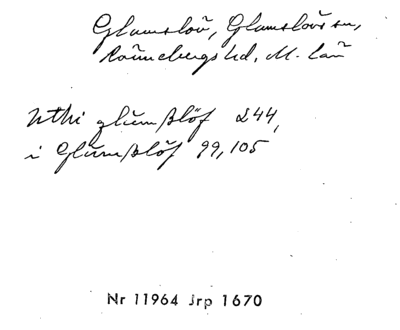 Glumslöv, Glumslövs sn,
Rönnebergs hd, M. län
Uthi glŭmßlöf 244,
i Glŭmßlŏf 99, 105
Nr 11964 Jrp 1670